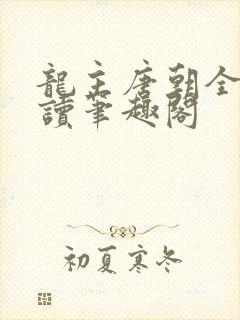 龍主唐朝全
讀筆趣閣
初夏寒冬